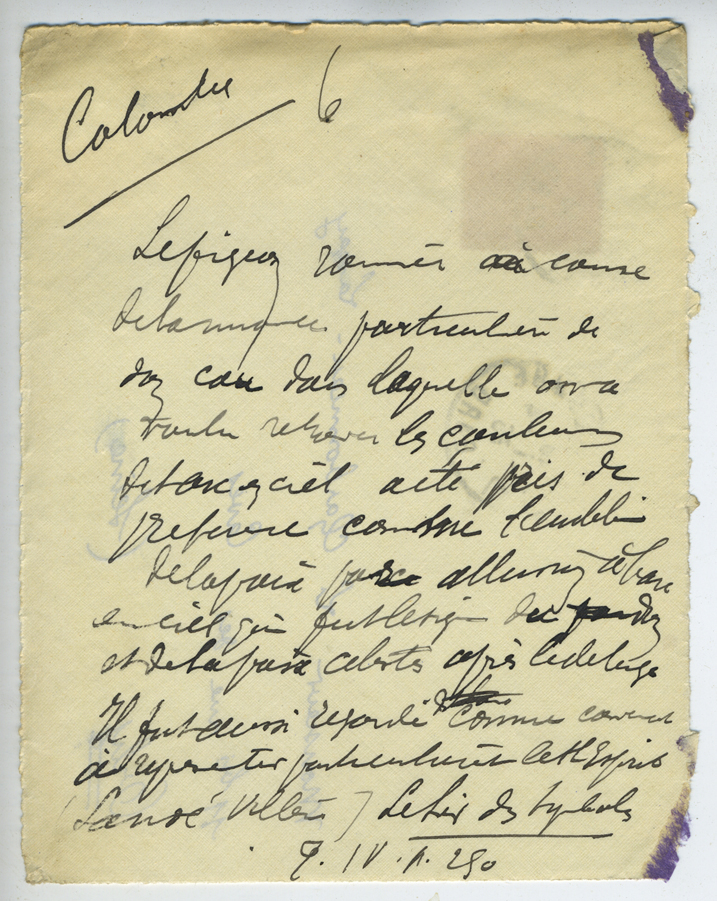 Colombe 6
Le pigeon ramier à cause
de la nuance particulière de
son cou dans laquelle on a
voulu retrouver les couleurs
de l'arc en ciel a été pris de
preference comme l'emblème
de la paix par allusion à l'arc
en ciel qui fut le signe du pardon
et de la paix celestes après le deluge
Il fut aussi regardé comme convenant
à representer particulièrement le St Esprit
(Lanoé Villène) Le Livre des Symboles
T. IV. p. 290